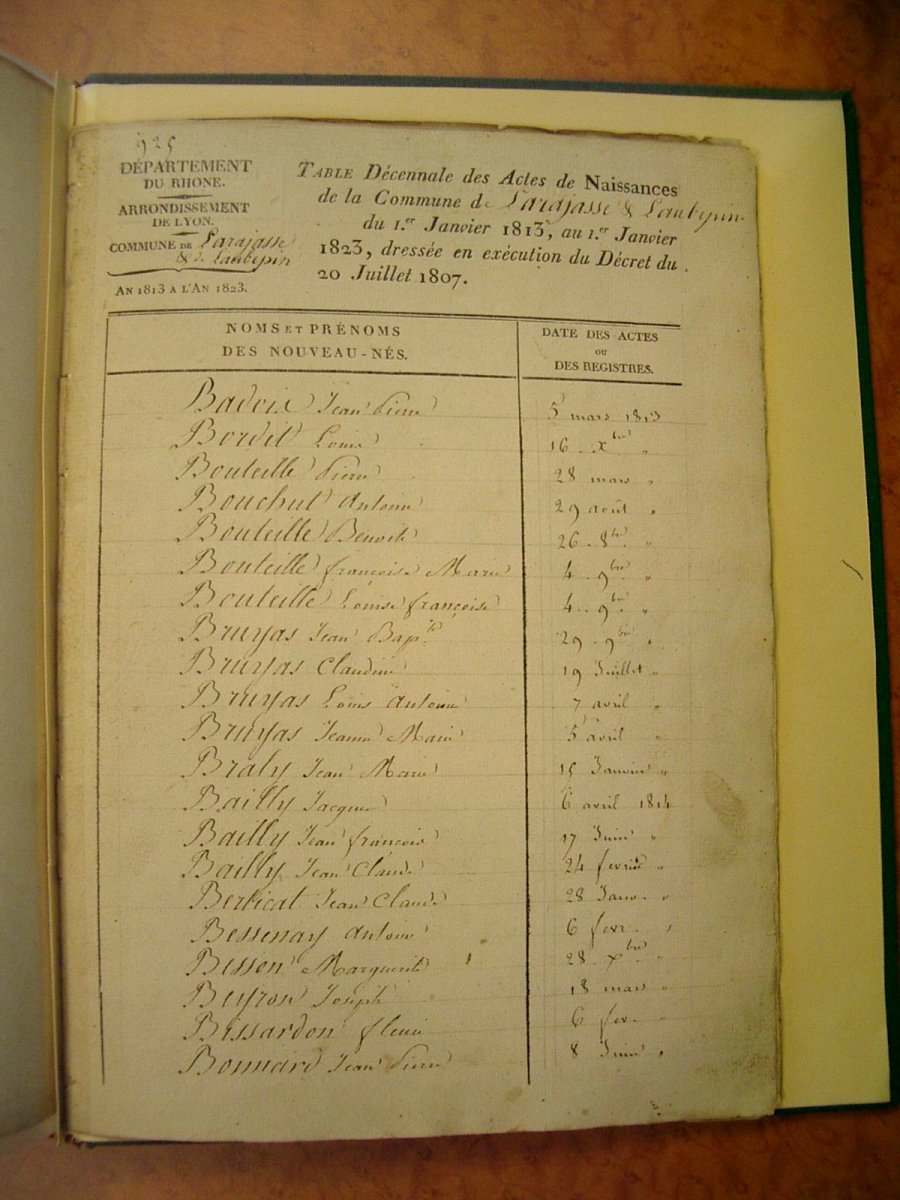 925
DÉPARTEMENT
DU RHONE.
ARRONDISSEMENT
DE LYON.
COMMUNE DE Larajasse
& de Laubepin
AN 1813 A L'AN 1823.
TABLE Décennale des Actes de Naissances
de la Commune de Larajasse & Laubepin
du 1.er Janvier 1813, au 1.er Janvier
1823, dressée en exécution du Décret du
20 Juillet 1807.
NOMS ET PRÉNOMS
DES NOUVEAU-NÉS.
DATE DES ACTES
OU
DES REGISTRES.
Badoix Jean Pierre 5 mars 1813
Bordet Louis 16 xbre "
Bouteille Pierre 28 mars "
Bouchut Antoine 29 août "
Bouteille Benoite 26 8bre "
Bouteille françoise Marie 4 9bre "
Bouteille Louise françoise 4 9bre "
Bruyas Jean Bapte 29 9bre "
Bruyas Claudine 19 Juillet "
Bruyas Louis Antoine 7 avril "
Bruyas Jeanne Marie 5 avril "
Braly Jean Marie 15 Janvier "
Bailly Jacques 6 avril 1814
Bailly Jean françois 17 Juin "
Bailly Jean Claude 24 fevrier "
Berlicat Jean Claude 28 Janv. "
Bessenay Antoine 6 fevr. "
Besson Marguerite 28 xbre "
Beyron Joseph 18 mars "
Bissardon fleurie 6 fev. "
Bonnard Jean Pierre 8 Juin "